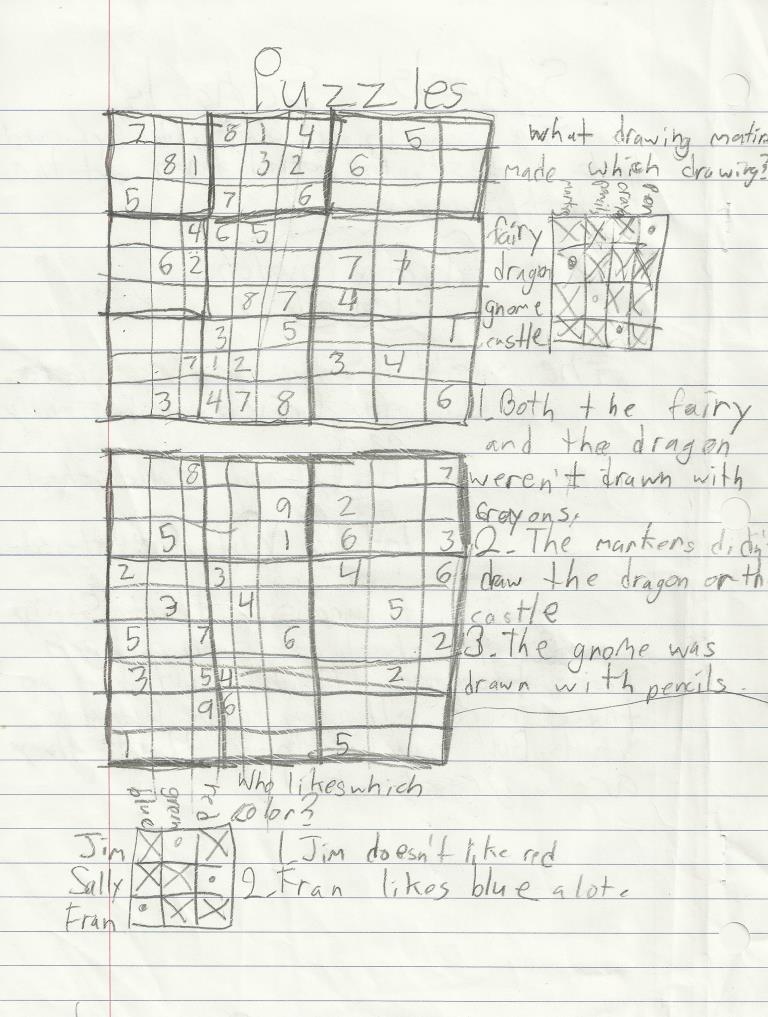 Puzzles
7 8 1 4 5
8 1 3 2 6
5 7 6
4 6 5
6 2 7 1
8 7 4
3 5 1
7 1 2 3 4
3 4 7 8 6
What drawing
made which drawing?
pencils
fairy
dragon
gnome
castle
1. Both the fairy
and the dragon
weren't drawn with
crayons.
2. The markers
daw the dragon or
castle
3. The gnome was
drawn with pencils.
8 7
9 2
5 1 6 3
2 3 4 6
3 4 5
5 7 6 2
3 5 4 2
9 6
1 5
Who likes which
color?
blue green red
Jim
Sally
Fran
1. Jim doesn't like red
2. Fran likes blue alote.